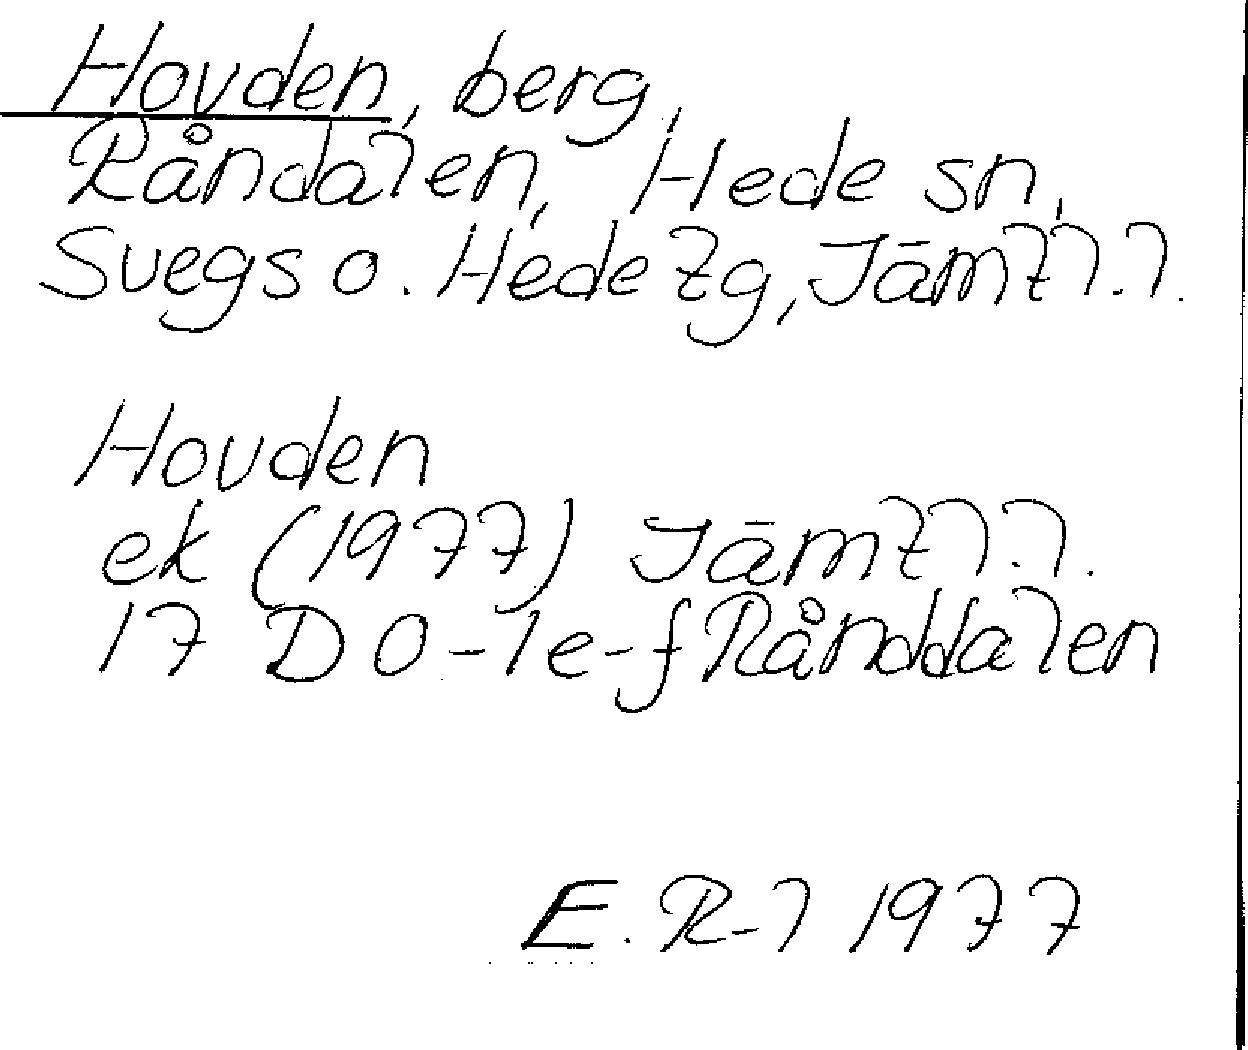 Hovden, berg,
Råndalen, Hede sn,
Svegs o. Hede tg, Jämtl.l.
Hovden
ek (1977) Jämtl.l.
17 D 0-1e-f Rånddalen
E. R-l 1977